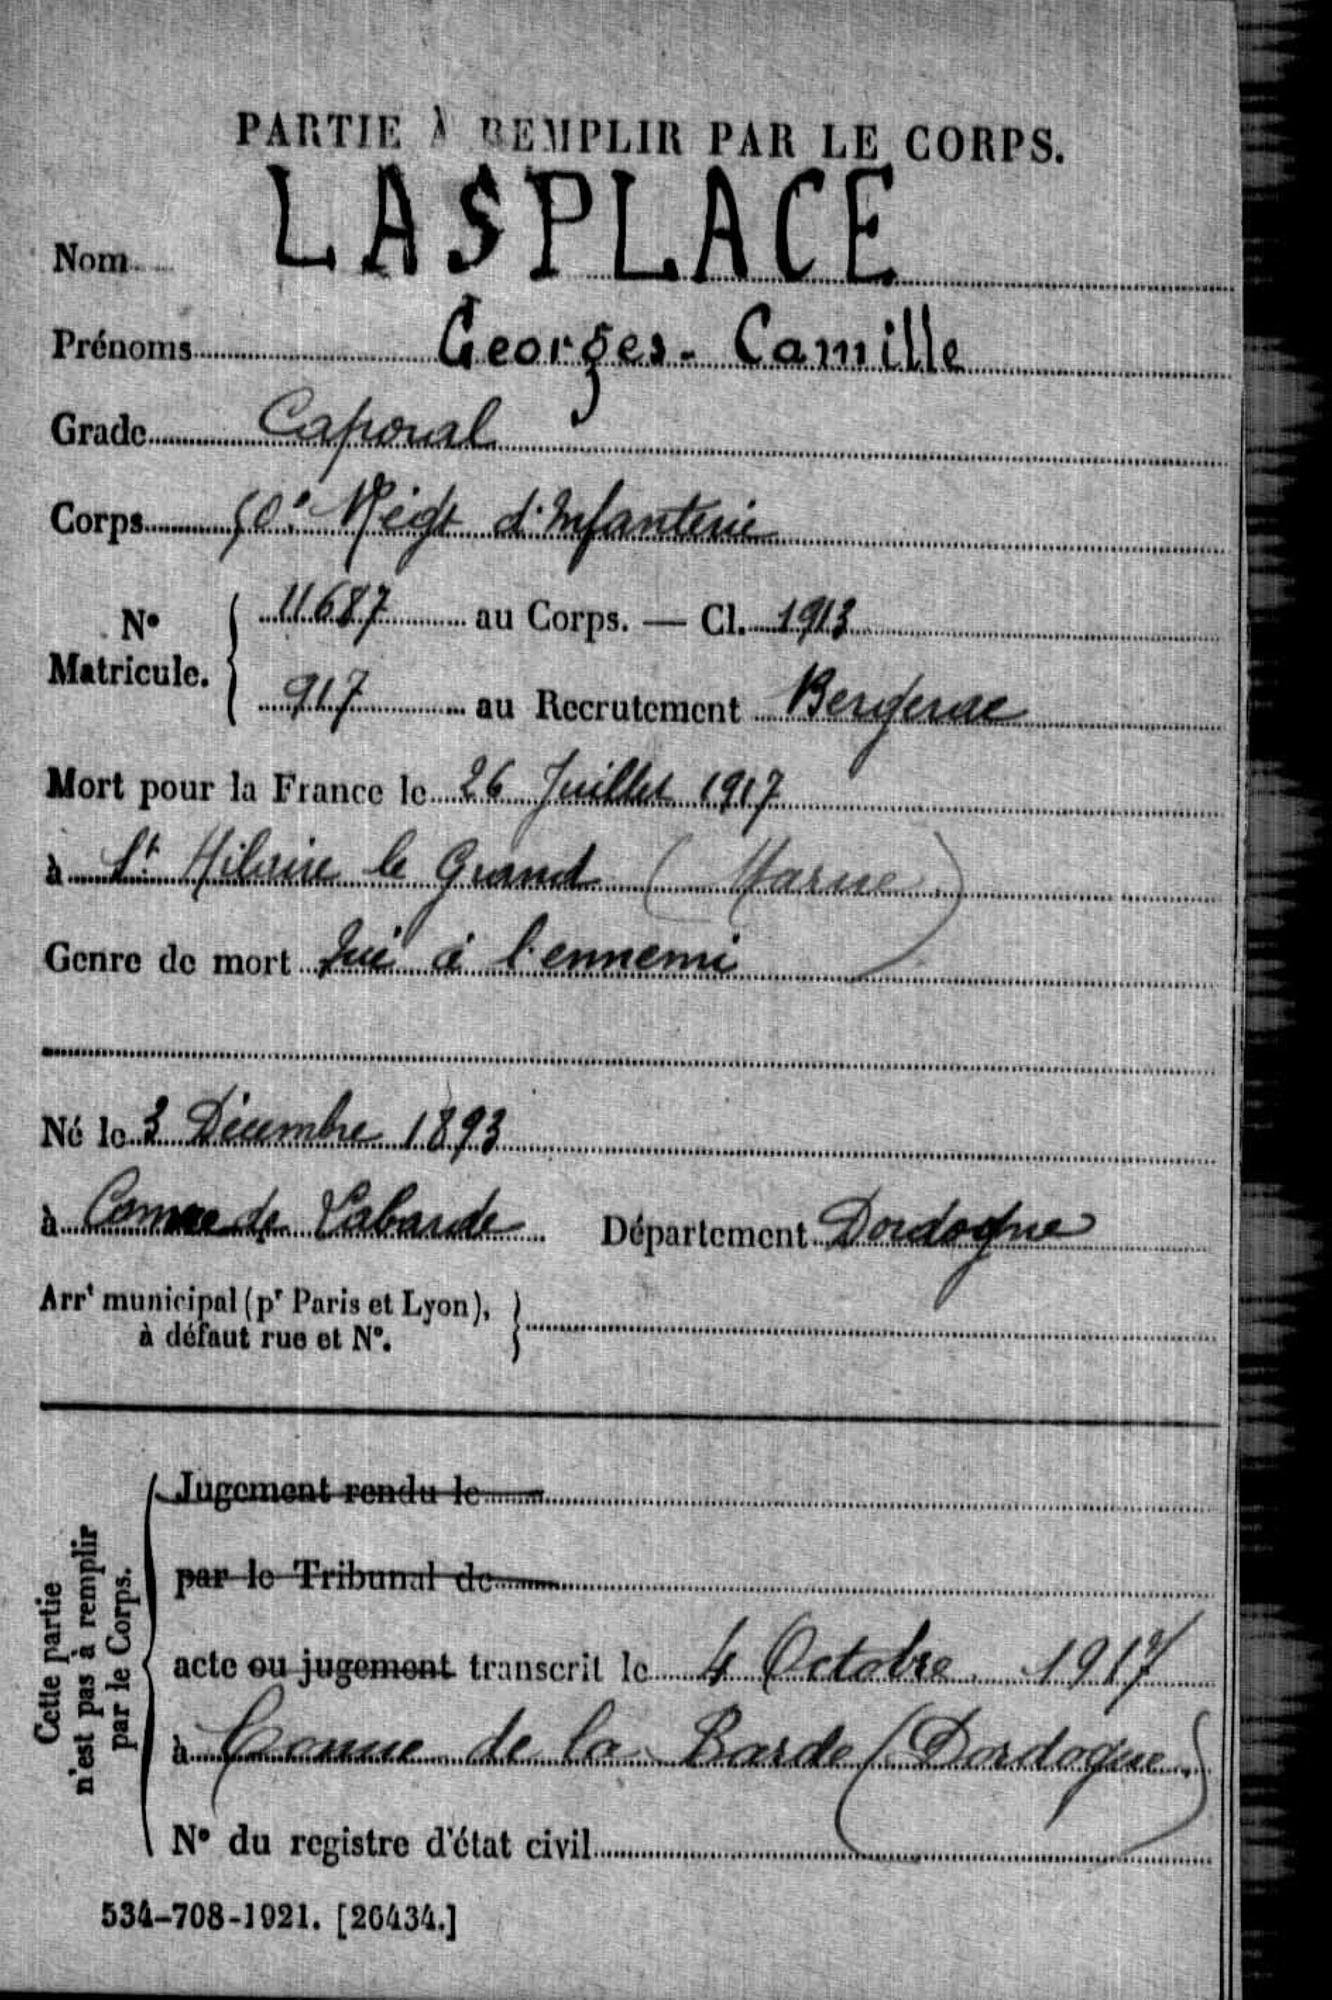 PARTIE À REMPLIR PAR LE CORPS.
Nom LASPLACE
Prénoms Georges - Camille
Grade Caporal
Corps 50e Régt d'Infanterie
No Matricule. { 11687 au Corps. — Cl. 1913
917 au Recrutement Bergerac
Mort pour la France le 26 Juillet 1917
à St Hilaire le Grand (Marne)
Genre de mort Tué à l'ennemi
Né le 3 Décembre 1893
à Conne de Labarde Département Dordogne
Arrt municipal (pr Paris et Lyon), }
à défaut rue et No.
Cette partie
n'est pas à remplir
par le Corps.
Jugement rendu le
par le Tribunal de
acte ou jugement transcrit le 4 Octobre 1917
à Conne de la Barde (Dordogne)
No du registre d'état civil
534-708-1921. [26434.]